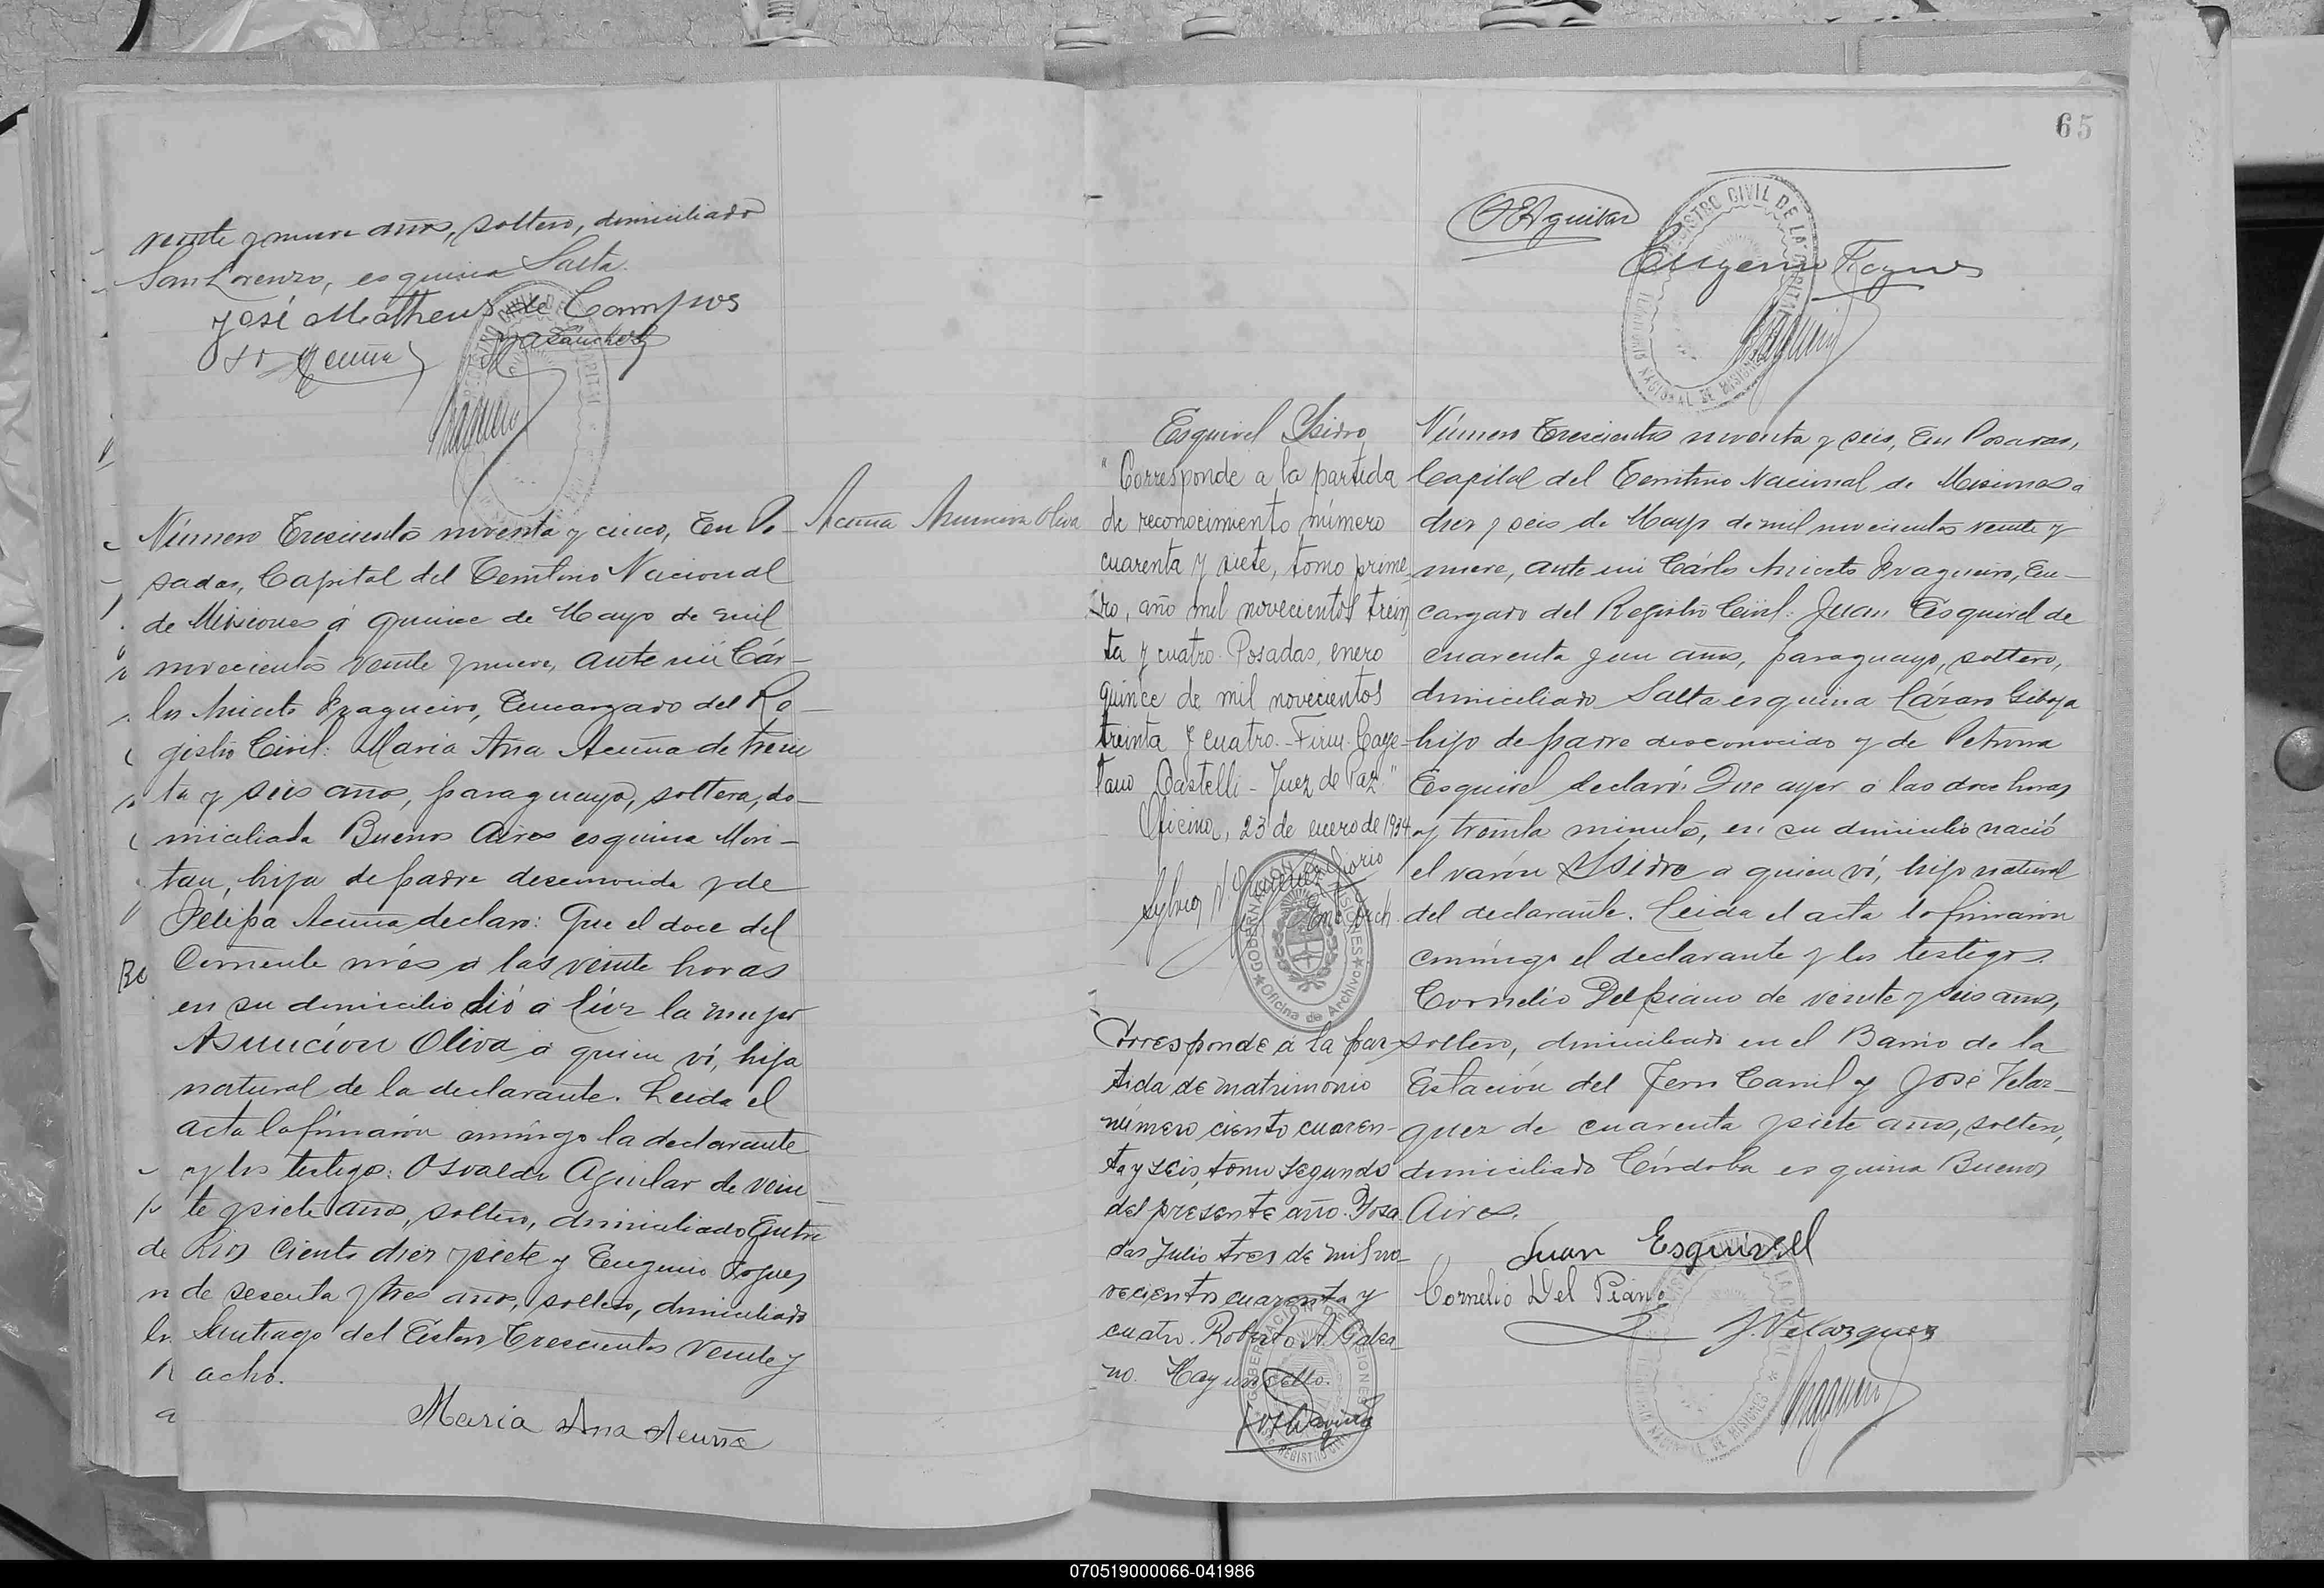 veinte y nueve años, soltero, domiciliado
San Lorenzo, esquina Salta.
José Matheus de Campos
Número Trescientos noventa y cinco, En Po-
sadas, Capital del Territorio Nacional
de Misiones á quince de Mayo de mil
novecientos veinte y nueve, ante mi Cár-
los Aniceto Fragueiro, Encargado del Re-
gistro Civil: Maria Ana Acuña de trein
ta y seis años, paraguaya, soltera, do-
miciliada Buenos Aires esquina Mori-
tan, hija de padre desconocido y de
Felipa Acuña declaro: Que el doce del
Corriente més á las veinte horas
en su domicilio dió á lúz la mujer
Asunción Oliva á quien ví, hija
natural de la declarante. Leida el
acta la firmaron conmigo la declarante
y los testigos: Osvaldo Aguilar de vein-
te y siete años, soltero, domiciliado Entre
Rios Ciento diez y siete y Eugenio
de sesenta y tres años, soltero, domiciliado
Santiago del Estero Trescientos Veinte y
ocho.
Maria Ana Acuña
Acuña Asuncion Oliva
65
OEAguilar
REGISTRO CIVIL DE LA CAPITAL
TERRITORIO NACIONAL DE MISIONES
Eugenio
Esquivel Isidro
"Corresponde a la partida
de reconocimiento número
cuarenta y siete, tomo prime
ro, año mil novecientos trein
ta y cuatro. Posadas, enero
quince de mil novecientos
treinta y cuatro.- Firm. Caye-
tano Castelli - Juez de Paz"
Oficina, 23 de enero de 1934
GOBERNACION MISIONES
Oficina de Archivo
Corresponde á la par-
tida de matrimonio
número ciento cuaren-
ta y seis, tomo segundo
del presente año. Posa
das Julio tres de mil no-
vecientos cuarenta y
cuatro. Roberto A. Galea-
no. Hay un sello.
Número Trescientos noventa y seis, En Posadas,
Capital del Territorio Nacional de Misiones a
diez y seis de Mayo de mil novecientos veinte y
nueve, ante mi Cárlos Aniceto Fragueiro, En-
cargado del Registro Civil: Juan Esquivel de
cuarenta y un años, paraguayo, soltero,
domiciliado Salta esquina Lázaro Giboja
hijo de padre desconocido y de Petrona
Esquivel declaró: Que ayer a las doce horas
y treinta minutos, en su domicilio nació
el varón Isidro a quien ví, hijo natural
del declarante. Leida el acta la firmaron
conmigo el declarante y los testigos.
Cornelio Delpiano de veinte y seis años,
soltero, domiciliado en el Barrio de la
Estación del Ferro Carril y José Velaz-
quez de cuarenta y siete años, soltero,
domiciliado Córdoba esquina Buenos
Aires.
Juan Esquivell
Cornelio Del Piano
J. Velazquez
070519000066-041986